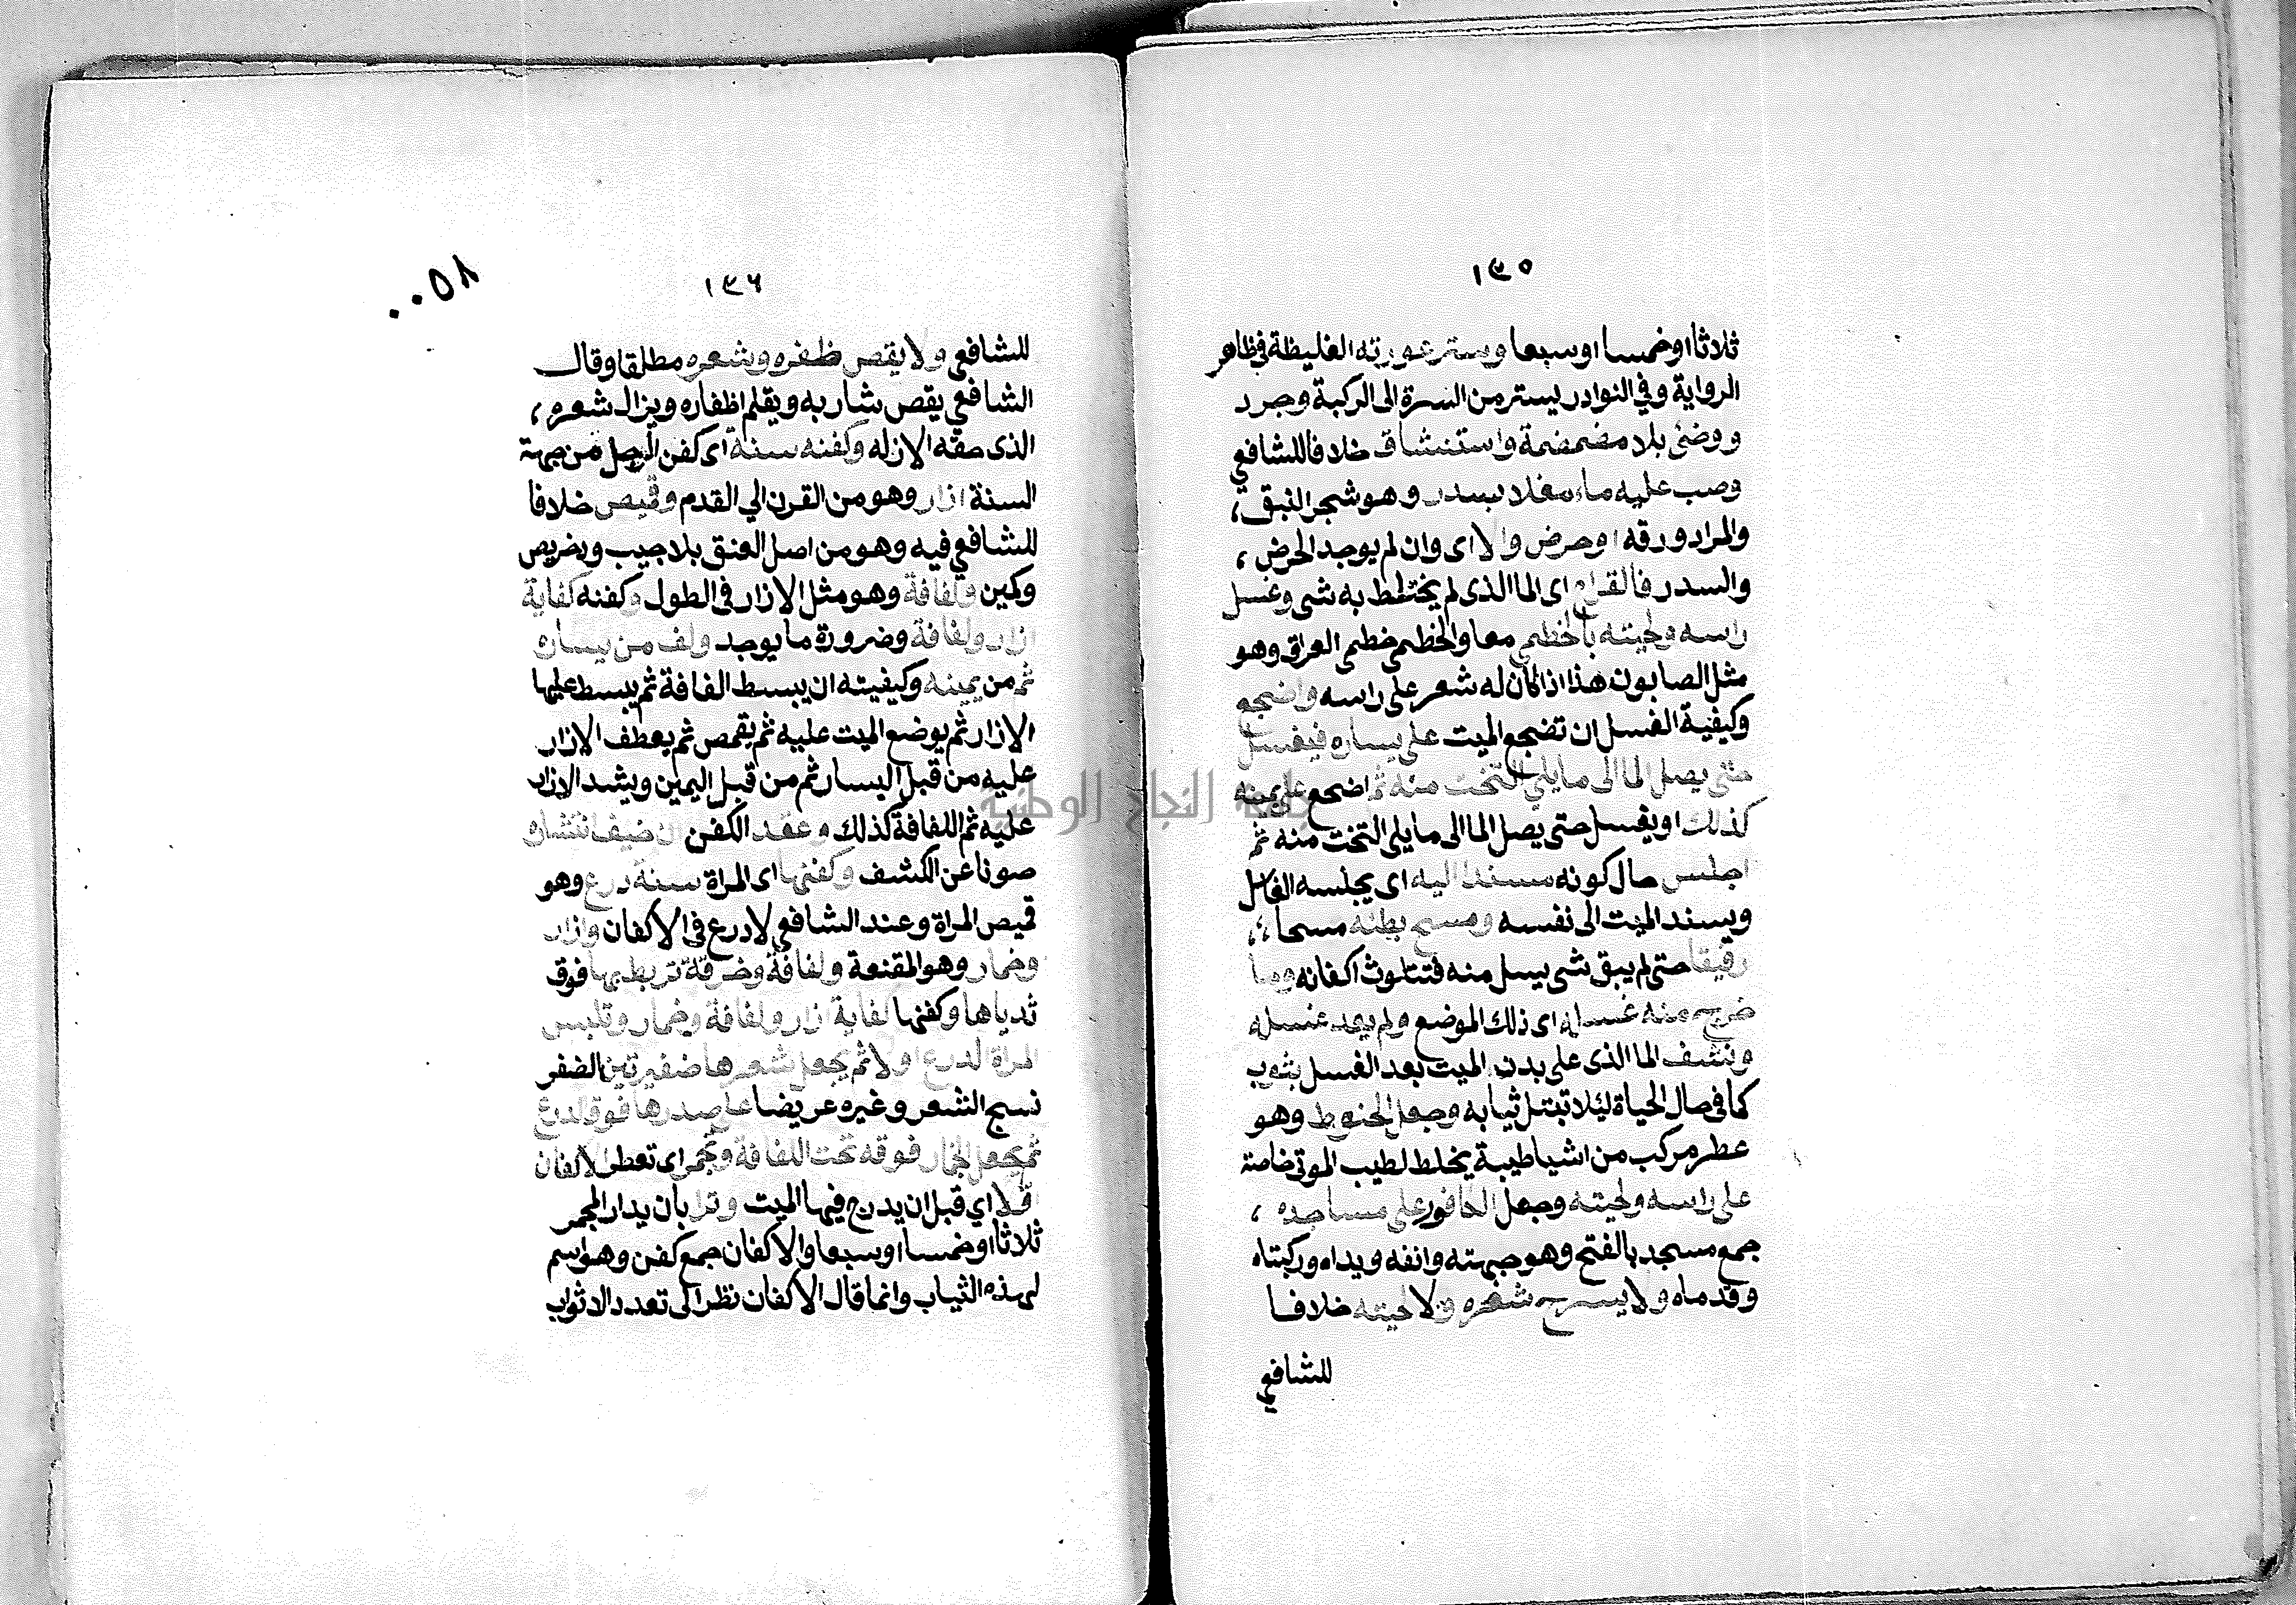 ١٣٥
ثلاثا او خمسا او سبعا وستر عورته الغليظة في ظاهر
الرواية وفي النوادر يستر من السرة الى الركبة وجرد
ووضئ بلا مضمضة واستنشاق خلافا للشافعي
وصب عليه ماء مغلا بسدر وهو شجر النبق،
والمراد ورقه او حرض والا اى وان لم يوجد الحرض،
والسدر فالقراح اى الما الذى لم يختلط به شى وغسل
راسه ولحيته بالخطمى معا والخطمى خطمى العراق وهو
مثل الصابون هذا اذا كان له شعر على راسه واضجع
وكيفية الغسل ان تضجع الميت على يساره فيغسل
حتى يصل الما الى ما يلي التخت منه ثم اضجع على يمينه
كذلك او يغسل حتى يصل الما الى ما يلى التخت منه ثم
اجلس حال كونه مسندا اليه اى يجلسه الغاسل
ويسند الميت الى نفسه ومسح بطنه مسحا،،
رقيقا حتى لم يبق شى يسل منه فتتلوث اكفانه وما
خرج منه غسله اى ذلك الموضع ولم يعد غسله
ونشف الما الذى على بدن الميت بعد الغسل بثوب
كما فى حال الحياة ليلا تبتل ثيابه وجعل الحنوط وهو
عطر مركب من اشيا طيبة يخلط لطيب الموتى خاصة
على راسه ولحيته وجعل الكافور على مساجده،
جمع مسجد بالفتح وهو جبهته وانفه ويداه وركبتاه
وقدماه ولا يسرح شعره ولا لحيته خلافا
للشافعي
١٣٦
٠٠٥٨
للشافعي ولا يقص ظفره وشعره مطلقا وقال
الشافعي يقص شاربه ويقلم اظفاره ويزال شعره،
الذى حقه الازله وكفنه سنة اى كفن الرجل من جهة
السنة ازار وهو من القرن الي القدم وقميص خلافا
للشافعي فيه وهو من اصل العنق بلا جيب ودخريص
وكمين ولفافة وهو مثل الازار فى الطول وكفنه كفاية
ازار ولفافة وضرورة ما يوجد ولف من يساره
ثم من يمينه وكيفيته ان يبسط الفافة ثم يبسط عليها
الازار ثم يوضع الميت عليه ثم يقمص ثم يعطف الازار
عليه من قبل اليسار ثم من قبل اليمين ويشد الازار
عليه ثم اللفافة كذلك وعقد الكفن ان خيف انتشاره
صونا عن الكشف وكفنها اى المراة سنة درع وهو
قميص المراة وعند الشافعي لا درع فى الاكفان وازار
وخمار وهو المقنعة ولفافة وخرقة تربط بها فوق
ثدياها وكفنها كفاية ازار ولفافة وخمار وتلبس
المراة الدرع اولا ثم يجعل شعرها ضفيرتين الضفر
نسج الشعر وغيره عريضا على صدرها فوق الدرع
ثم يجعل الخمار فوقه تحت اللفافة وتجمر اى تعطى الاكفان
اولا اي قبل ان يدرج فيها الميت وترا بان يدار المجمر
ثلاثا او خمسا او سبعا والاكفان جمع كفن وهو اسم
لهذه الثياب وانما قال الاكفان نظرا الى تعدد الاثواب